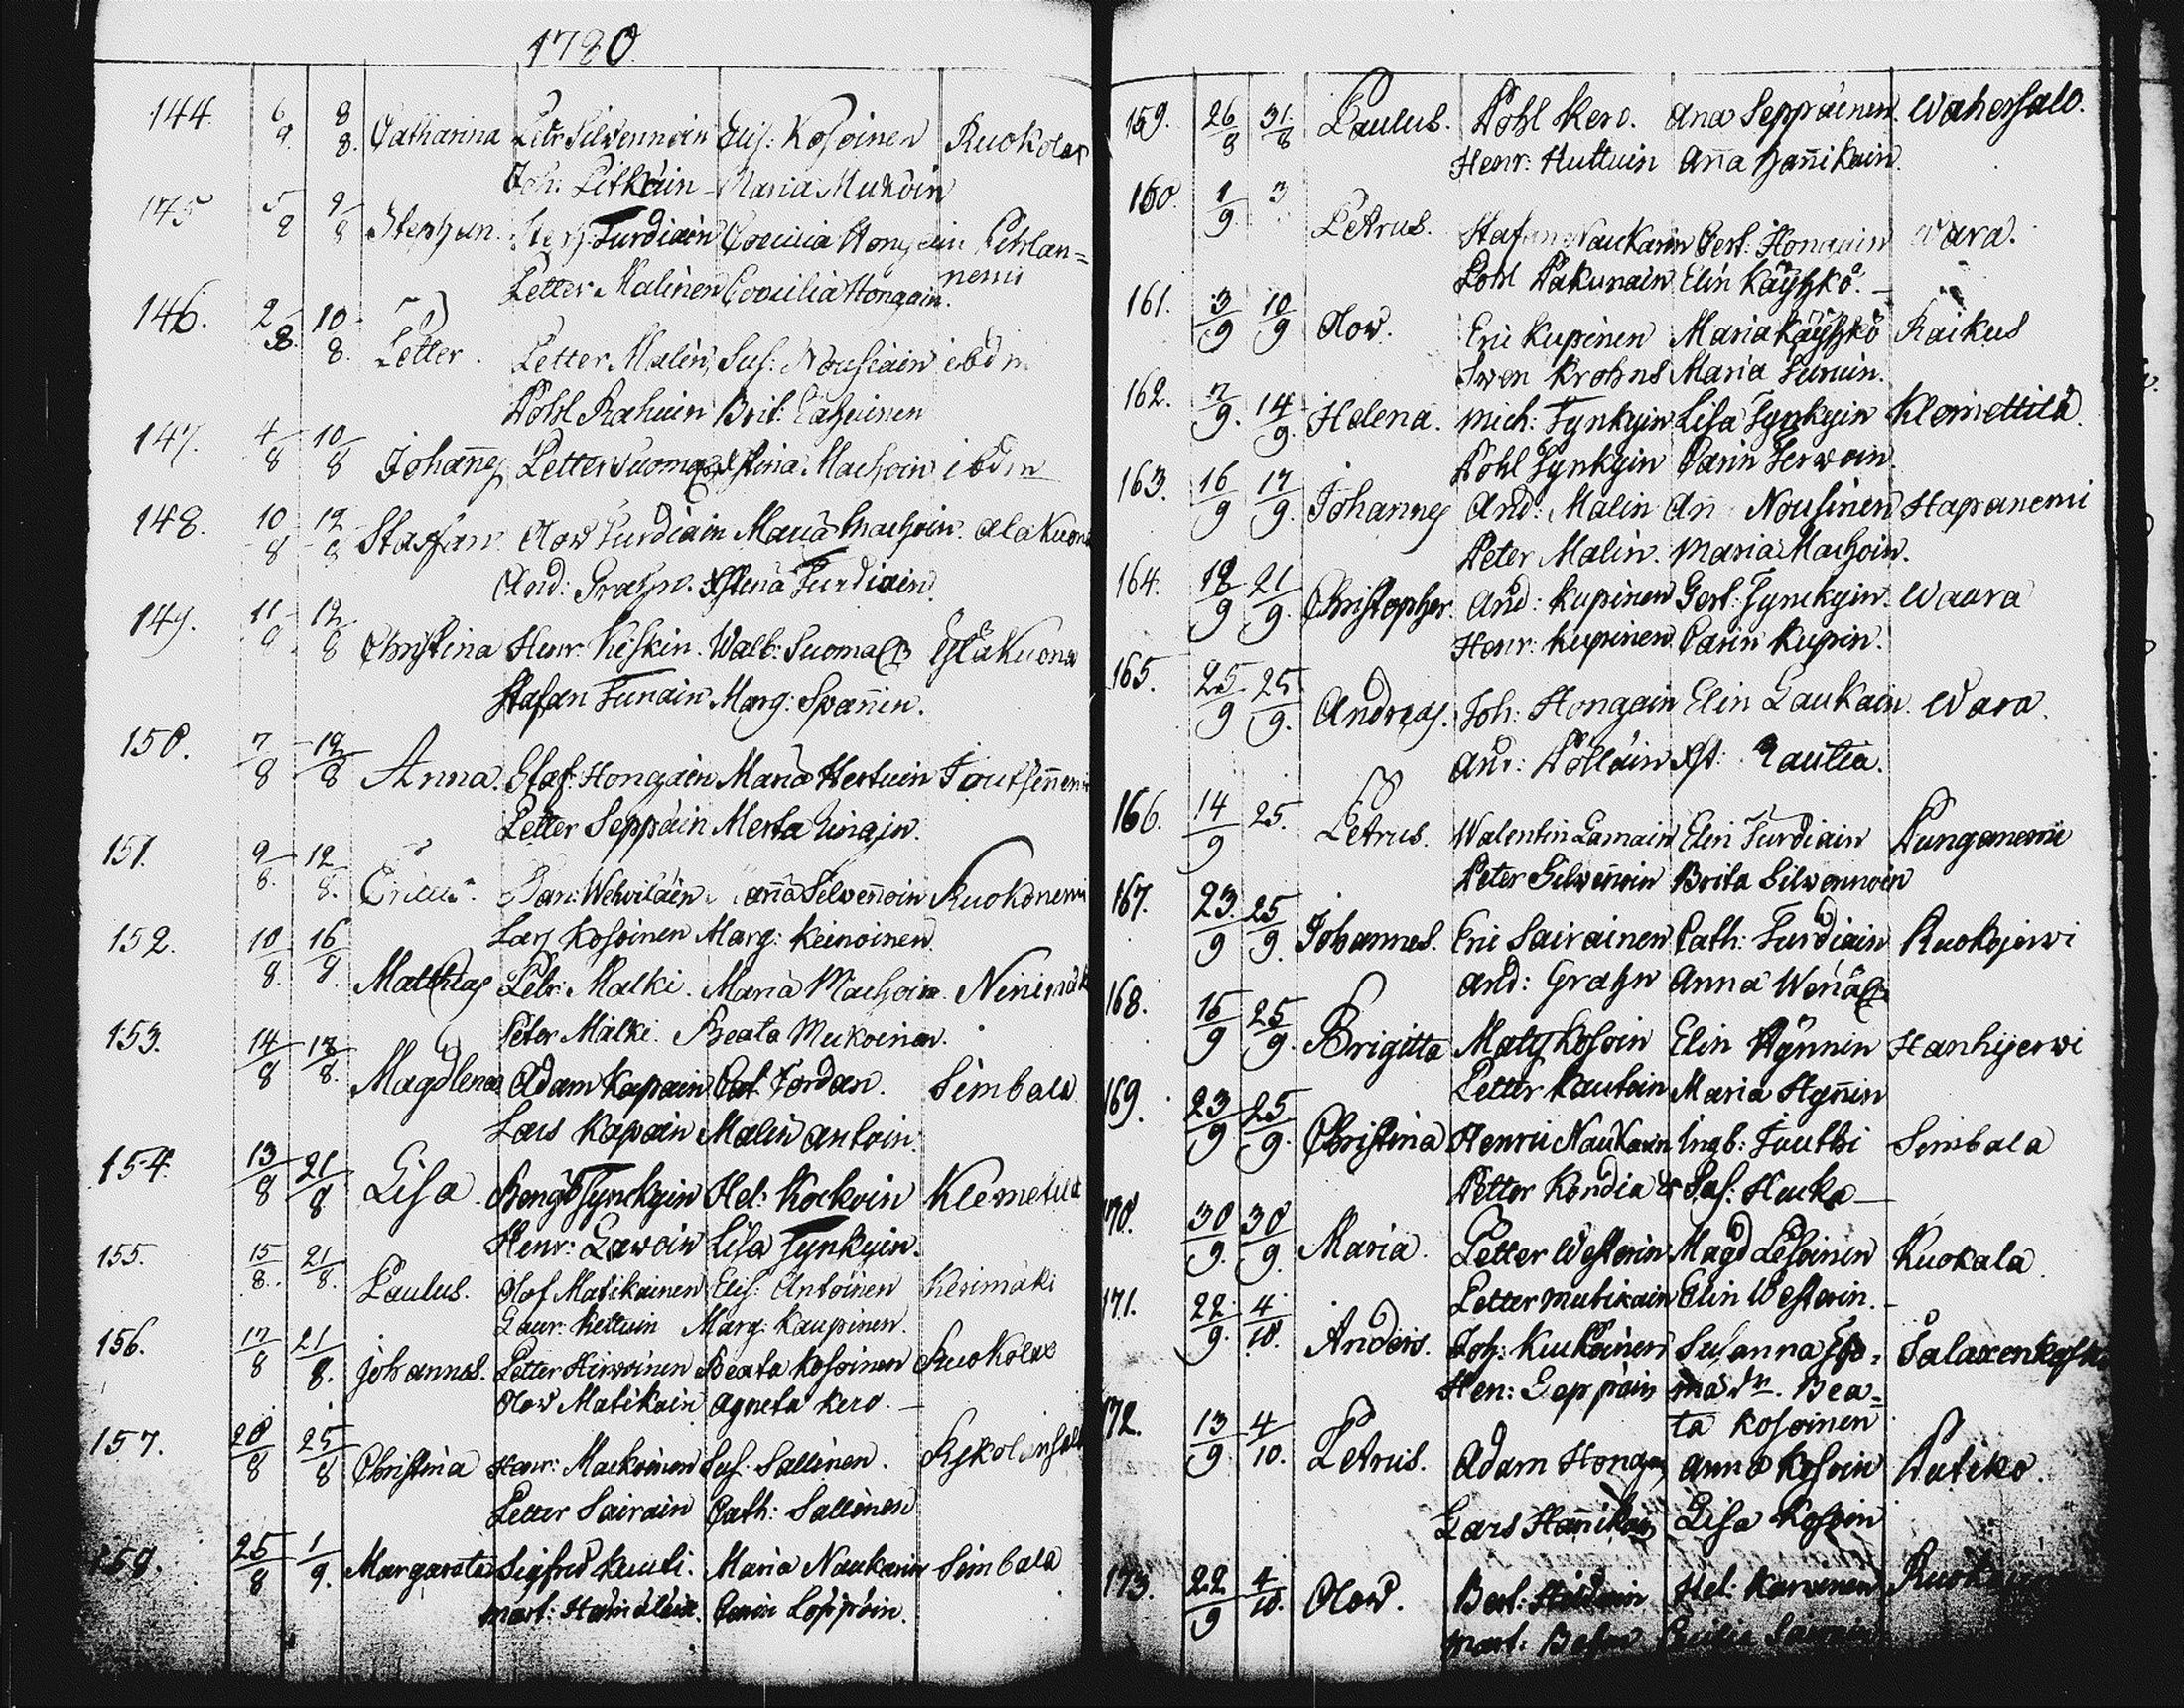 1780.
144. 6/8. 8/8. Catharina Petr Silvennoin Elis: Kosoinen Ruokolax
Joh: Pitkäin Maria Mukoin
145 5/8 9/8 Stephan. Steph. Turdiain Coecilia Hongain Pihlan=
Petter Malinen Coecilia Hongain. nemi
146. 2/8. 10/8. Petter. Petter Malin, Sus: Nousiain ibdm
Pohl Rahuin Brit:
147. 4/8 10/8 Johannes Petter Suomal: Stina Machoin ibdm
148. 10/8 12/8 Staffan Olow Turdiain Maria Machoin. Ala Kuona
And: Grahn. Helena Turdiain.
149. 11/8 12/8 Christina Henr: Kiskin. Walb: Suomal: Kuona
Stafan Tunain. Marg: Spannin.
150. 7/8 12/8 Anna. Staf: Hongain Maria Hertuin Joutsennemi
Petter Seppäin Merta
151. 9/8. 12/8. Ericus. Dan: Wehviläin Anna Silvennoin Ruokonemi
Lars Kosoinen Marg: Keinoinen.
152. 10/8. 16/8. Matthias Petr: Malki. Maria Machoin. Ninimäki
Peter Malki. Beata Mukoinen.
153. 14/8 18/8. Magdlena Adam Kapain Cat. Jordan. Simbala
Lars Kapain Malin Antoin.
154. 13/8 21/8 Lisa Bengt Tynckyin Hel: Kockoin Klemetilä
Henr: Lawoin Lisa Tynkyin.
155. 15/8. 21/8. Paulus. Olof Matikainen Elis: Antoinen Kerimäki
Laur: Kettuin Marg: Kaupinen.
156. 17/8 21/8. Johannes. Petter Hirwoinen Beata Kosoinen Ruokolax
Olow Matikain Agneta Kero.
157. 20/8 25/8 Christina Henr: Mackoinen Sus. Sallinen.
Petter Sairain Cath: Sallinen
158. 25/8 1/9. Margareta Sigfred Kuuti. Maria Naukarin Simbala
Mart: Hämäläin. Carin Loppoin.
159. 26/8 31/8 Paulus. Pohl Kero. Ana Seppäinen. Wahersalo.
Henr: Huttuin Anna Hannikain.
160. 1/9. 3 Petrus. Stafan Naukarin Gert: Hongain Wara.
Pohl Pakunain Elin Käyhkö.
161. 3/9 10/9 Olow. Eric Kupinen Maria Käyhkö Raikus
Swen Krohns Maria Tunuin.
162. 7/9. 14/9. Helena. Mich: Tynkyin Lisa Tynkyin Klemettilä.
Pohl Tynkyin Carin Terwoin.
163. 16/9 17/9. Johannes And: Malin An Nousinen Hapanemi
Peter Malin. Maria Machoin.
164. 18/9 21/9. Christopher. And: Kupinen Gert: Tynckyin. Waara
Henr: Kupinen. Carin Kupin.
165. 25/9 25/9. Andreas. Joh: Hongain Elin Laukain. Wara.
And: Pölläin Rautia.
166. 14/9 25. Petrus. Walentin Lamain Elin Turdiain Punganemi
Peter Silvennoin Brita Silvennoin
167. 23./9 25/9. Johannes. Eric Sairainen Cath: Turdiain Ruokojerwi
And: Grahn Anna
168. 15/9 25/9. Brigitta Mats Kosoin Elin Hynnin Hanhijerwi
Petter Kautoin Maria Hynnin
169. 23/9 25/9. Christina Henric Naukarin Ingb: Jouthi Simbala
Petter Kondia & Sus: Heuka
170. 30/9. 30/9. Maria. Petter Westerin Magd Lesoinen Ruokala
Petter Mutikain Elin Westerin.
171. 22./9. 4/10. Anders. Joh: Kuckoinen Susanna Tho=
Hen: Seppäin madr. Bea=
ta Kosoinen
172. 13/9 4/10. Petrus. Adam Hongain Anna Kosoin Putiko.
Lars Hannikain Lisa Kosoin
173. 22/9 4/10. Olow. Bert: Hel: Karvinen
Mart: Cecilia